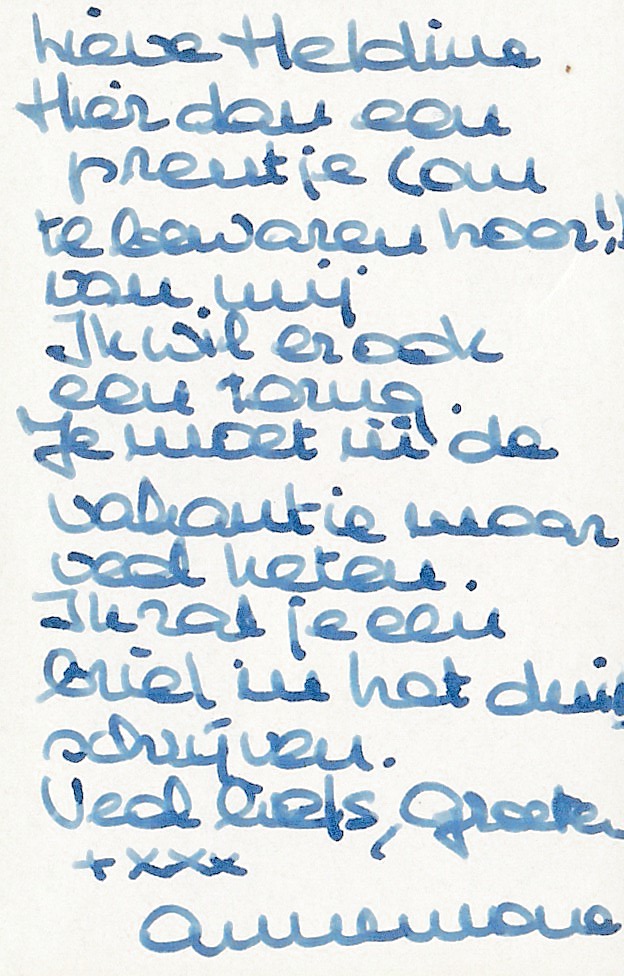 Lieve Heldine
Hier dan een
prentje (om
te bewaren hoor!)
van mij
Ik wil er ook
een terug.
Je moet in de
vakantie maar
veel keten.
Ik zal je een
brief in het duits
schrijven.
Veel liefs, Groeten
+xxxx
Annemone